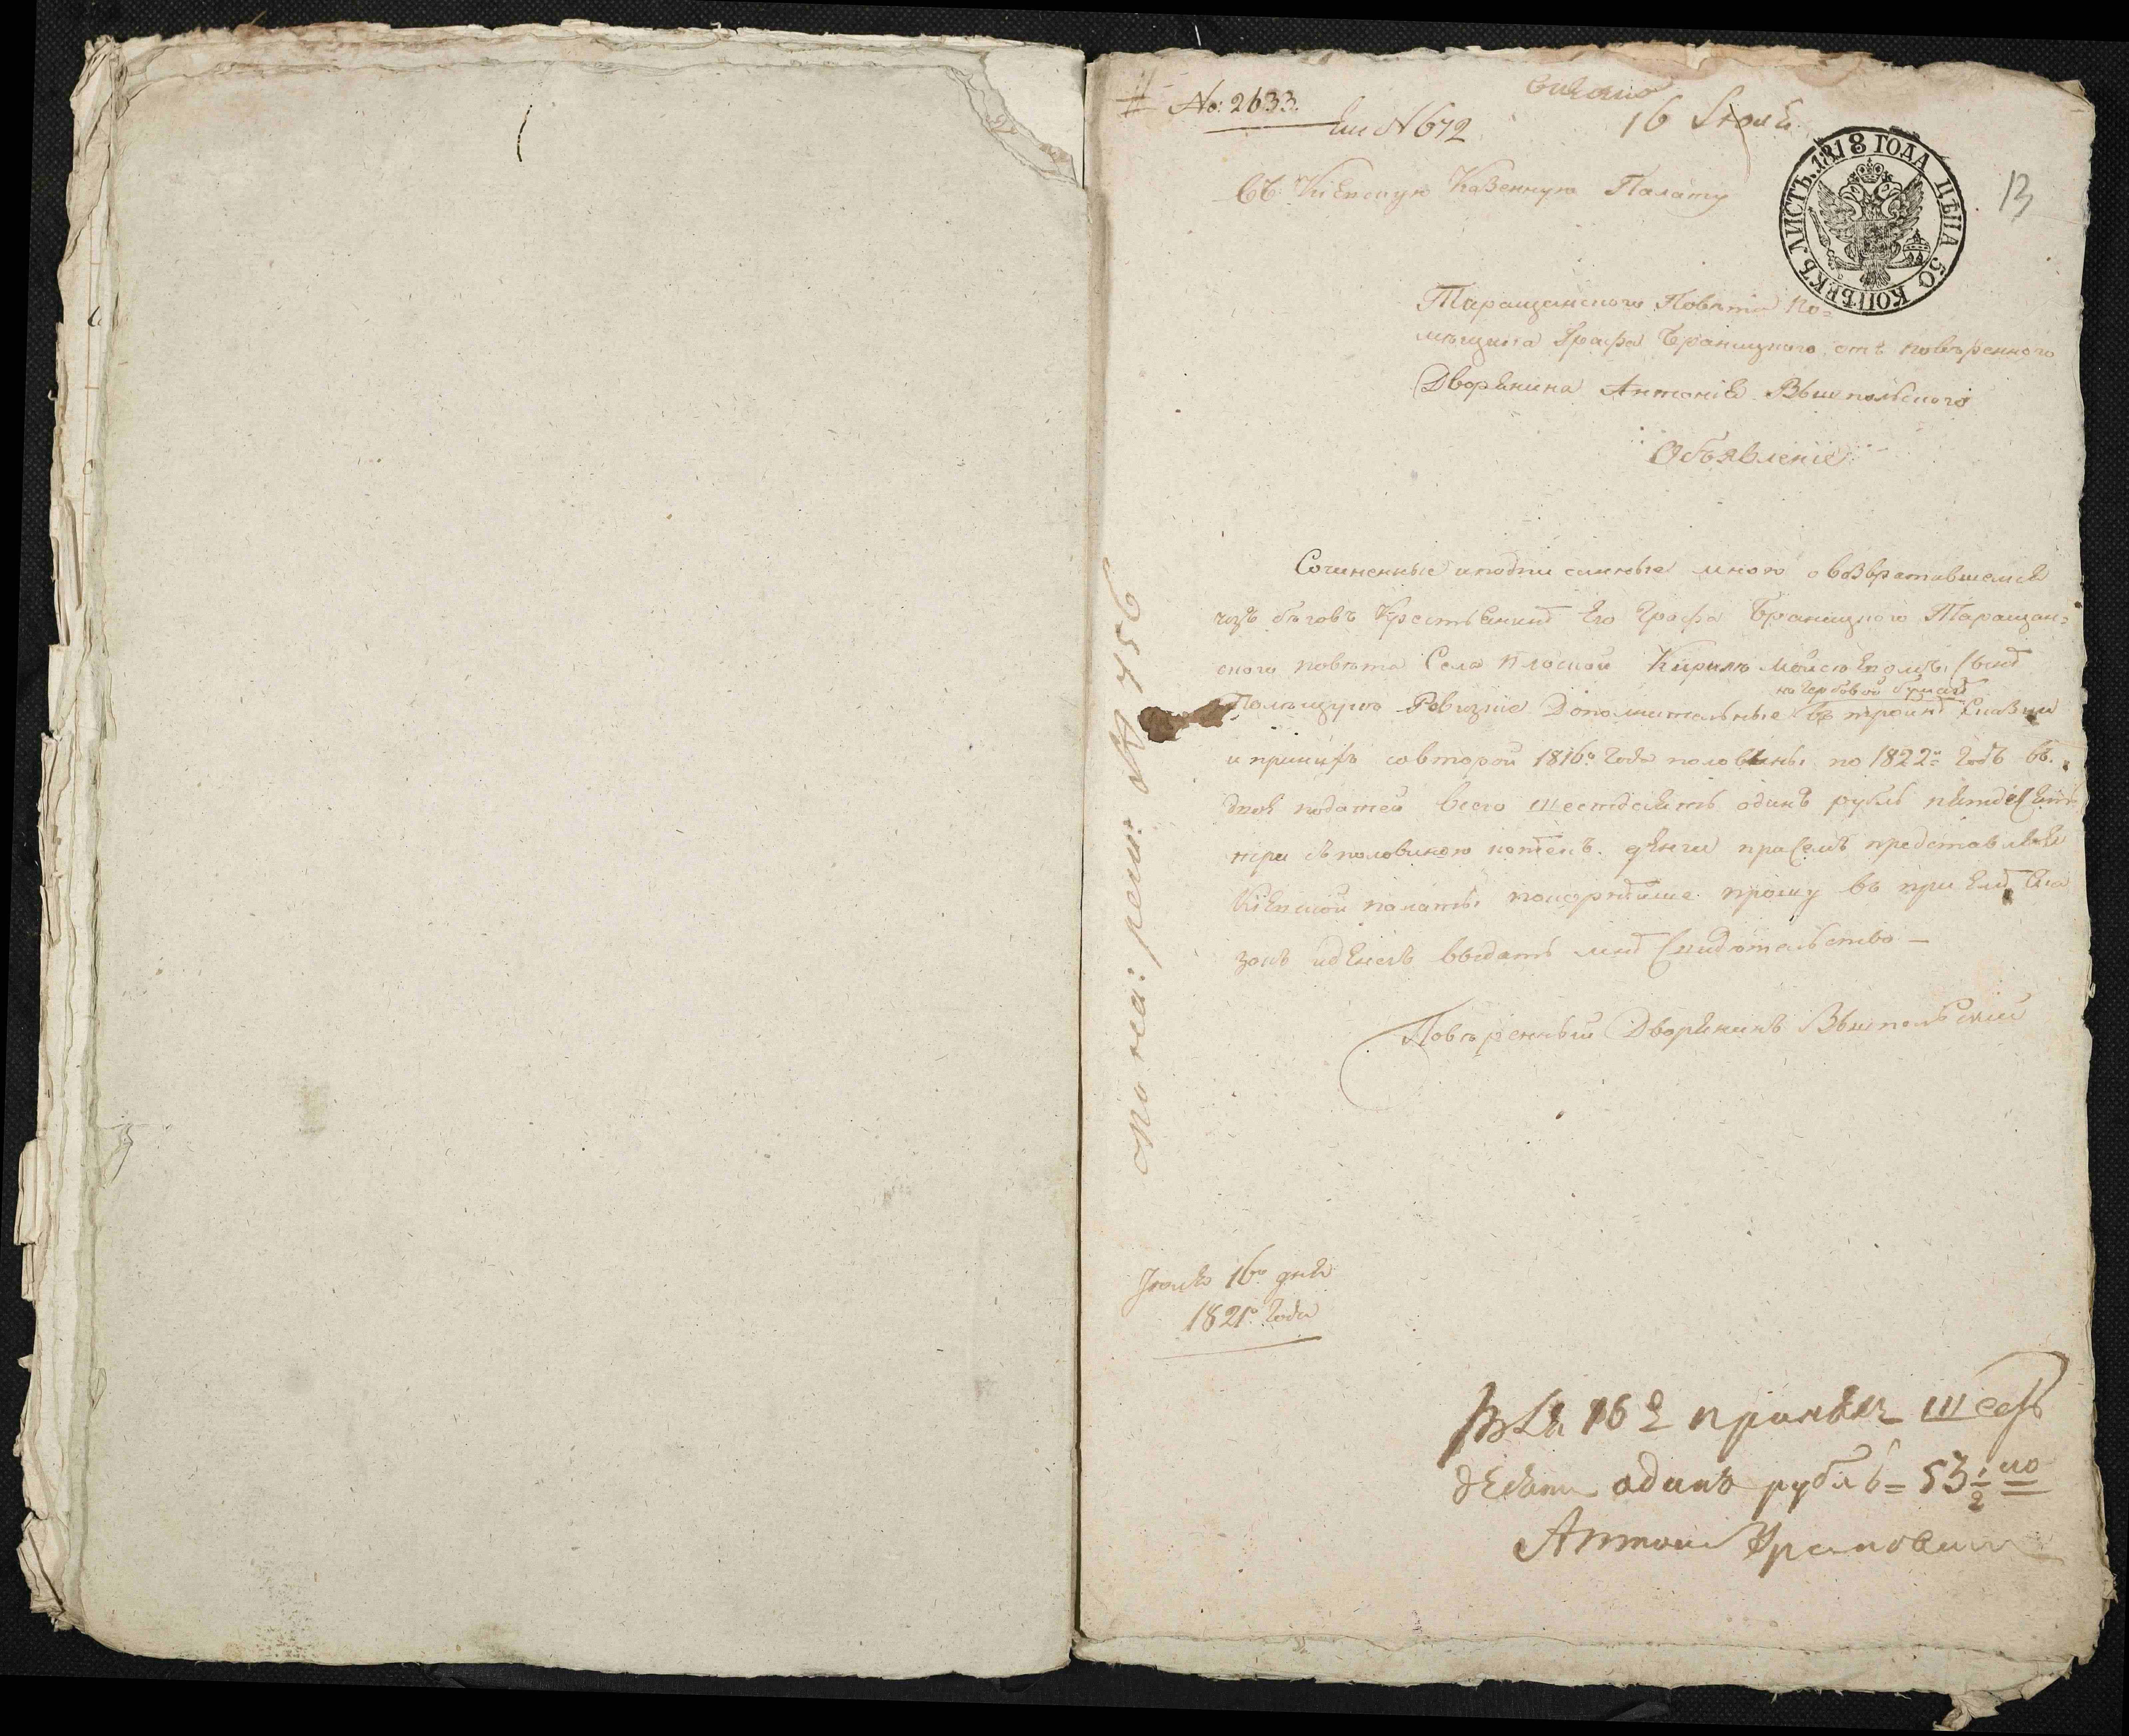 No: 2633.
16 Июля
№ 672
13
ЛИСТЪ. 1818 ГОДА ЦѢНА 50 КОПѢЕКЪ.
Въ Кіевскую Казенную Палату
Таращанского Повѣта По=
мѣщика Графа Браницкого отъ повѣренного
Дворянина Антонія Вышпольского
Объявленіе
Сочиненные и подписанные мною о возвратившемся
изъ бѣговъ Крестьянинѣ Его Графа Браницкого Таращан=
ского повѣта Села Плоской Кирилѣ Сынѣ
на Гербовой бумагѣ
Ревизкіе Дополнительные въ троинѣ Сказки
и при нихъ со второй 1816го Года половины по 1822й Годъ
податей всего шестдесятъ одинъ рубль пятдесятъ
три съ половиною копѣекъ. денги при семъ представляя
Кіевской палаты покорнѣйше прошу въ пріемѣ ска
зокъ и денегъ выдать мнѣ Свидѣтельство —
Повѣренный Дворянинъ Вышпольскій
Іюля 16го дня
1821го Года
№ 756
162 принялъ шесть
десятъ одинъ рубль = 53 1/2 ко
Антон